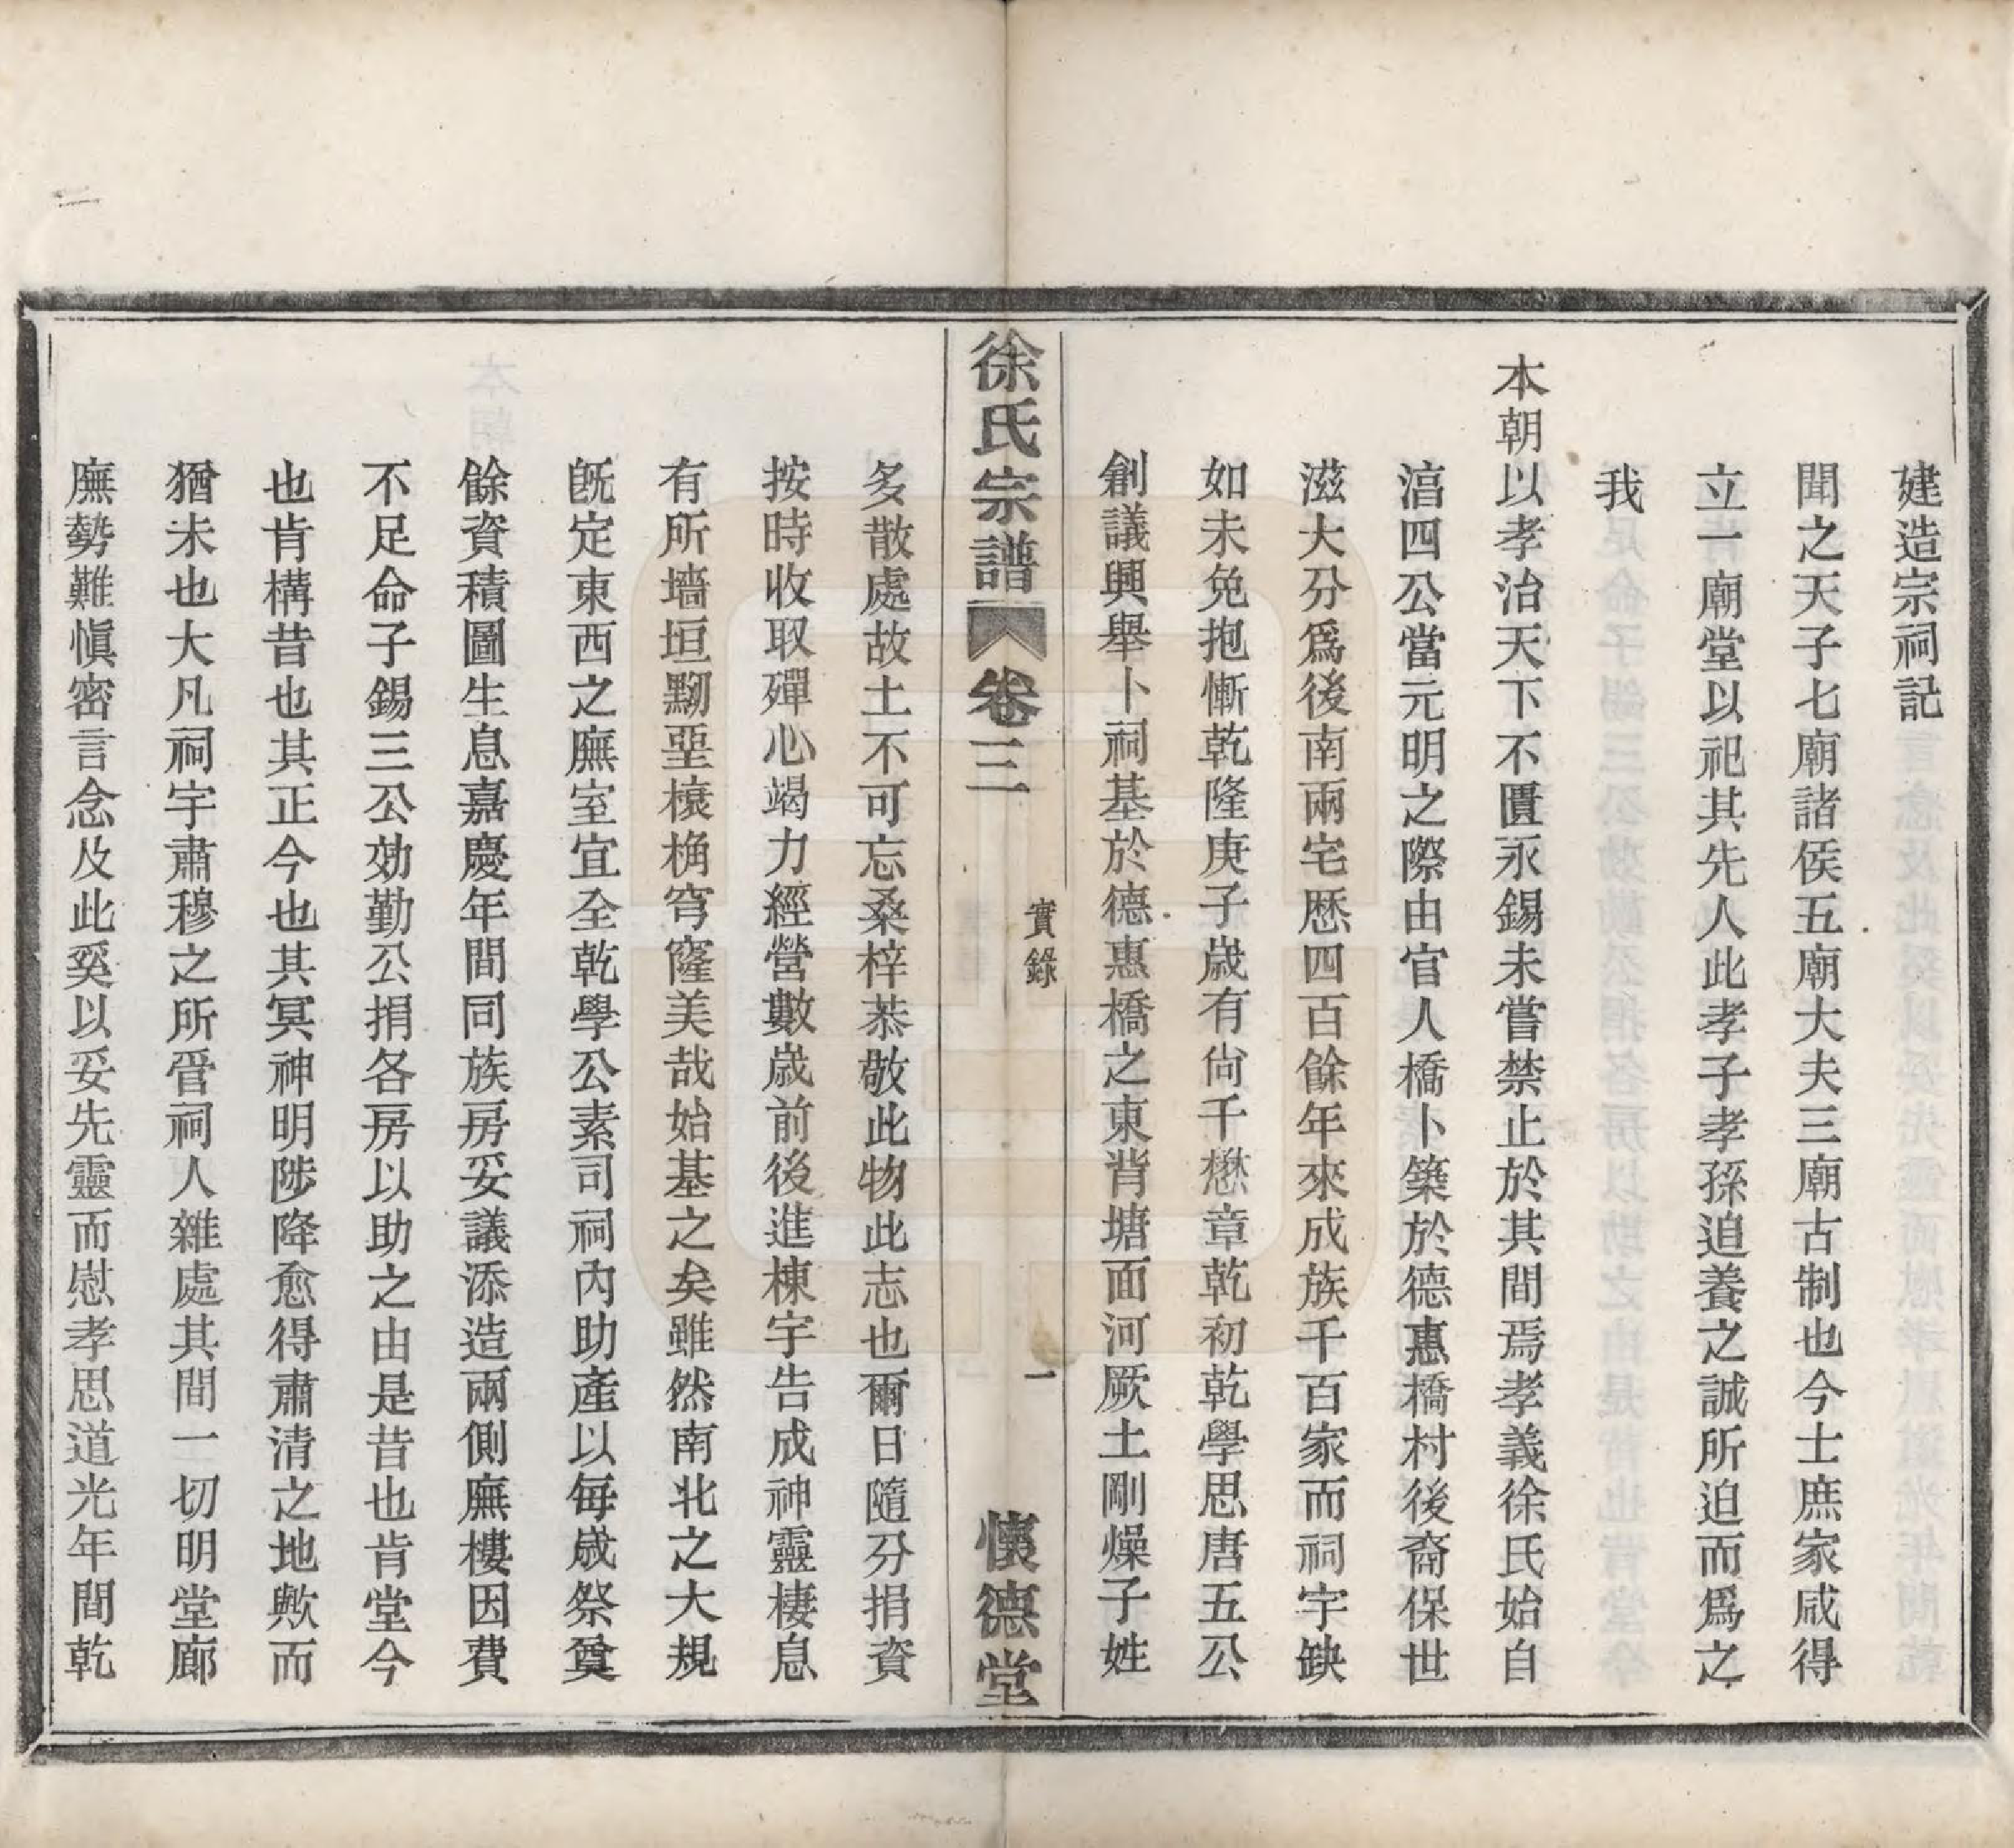 建造宗祠記
聞之天子七廟諸侯五廟大夫三廟古制也今士庶家咸得
立一廟堂以祀其先人此孝子孝孫迫養之誠所迫而爲之
我
本朝以孝治天下不匱永錫未嘗禁止於其間焉孝義徐氏始自
湻四公當元明之際由官人橋卜築於德惠橋村後裔保世
滋大分爲後南兩宅歷四百餘年來成族千百家而祠宇缺
如未免抱慚乾隆庚子歲有尙千懋章乾初乾學思唐五公
創議興舉卜祠基於德惠橋之東背塘面河厥土剛燥子姓
徐氏宗譜 卷三 實錄 一 懷德堂
多散處故土不可忘桑梓恭敬此物此志也爾日隨分捐資
按時收取殫心竭力經營數歲前後進棟宇告成神靈棲息
有所墻垣黝堊榱桷穹窿美哉始基之矣雖然南北之大規
旣定東西之廡室宜全乾學公素司祠內助產以每歲祭奠
餘資積圖生息嘉慶年間同族房妥議添造兩側廡樓因費
不足命子錫三公効勤公捐各房以助之由是昔也肯堂今
也肯構昔也其正今也其冥神明陟降愈得肅清之地歟而
猶未也大凡祠宇肅穆之所管祠人雜處其間一切明堂廊
廡勢難愼密言念及此奚以妥先靈而慰孝思道光年間乾